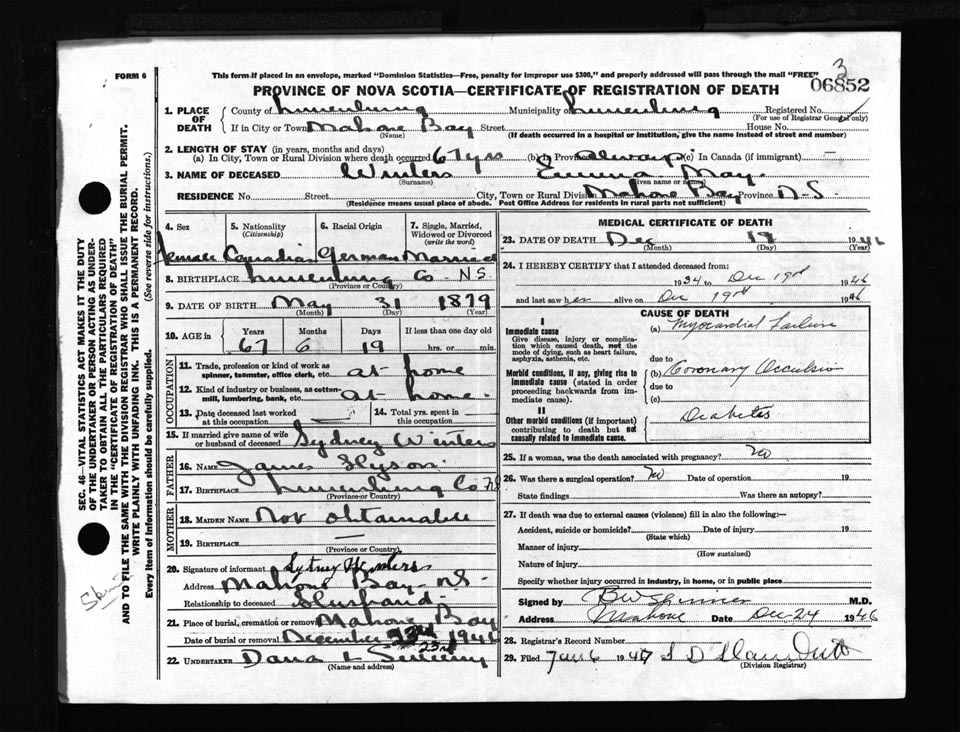 FORM 6
This form if placed in an envelope, marked "Dominion Statistics—Free, penalty for improper use $300," and properly addressed will pass through the mail "FREE"
3
06852
PROVINCE OF NOVA SCOTIA—CERTIFICATE OF REGISTRATION OF DEATH
1. PLACE OF DEATH
County of Lunenburg Municipality of Lunenburg Registered No.
(For use of Registrar General only)
If in City or Town Mahone Bay Street House No.
(Name) (If death occurred in a hospital or institution, give the name instead of street and number)
2. LENGTH OF STAY (in years, months and days)
(a) In City, Town or Rural Division where death occurred 67 yrs (b) In Province always (c) In Canada (if immigrant) —
3. NAME OF DECEASED Winters Emma May
(Surname) (Given name or names)
RESIDENCE No. Street City, Town or Rural Division Mahone Bay Province N.S.
(Residence means usual place of abode. Post Office Address for residents in rural parts not sufficient)
4. Sex 5. Nationality (Citizenship) 6. Racial Origin 7. Single, Married, Widowed or Divorced (write the word)
Female Canadian German Married
8. BIRTHPLACE Lunenburg Co - N.S.
(Province or Country)
9. DATE OF BIRTH May 31 1879
(Month) (Day) (Year)
10. AGE in Years Months Days If less than one day old
67 6 19 hrs. or min.
OCCUPATION
11. Trade, profession or kind of work as spinner, teamster, office clerk, etc. at home
12. Kind of industry or business, as cotton-mill, lumbering, bank, etc. at home
13. Date deceased last worked at this occupation — 14. Total yrs. spent in this occupation
15. If married give name of wife or husband of deceased Sydney Winters
FATHER
16. NAME James
17. BIRTHPLACE Lunenburg Co NS
(Province or Country)
MOTHER
18. MAIDEN NAME Not obtainable
19. BIRTHPLACE —
(Province or Country)
20. Signature of informant Sydney Winters
Address Mahone Bay - NS -
Relationship to deceased Husband -
21. Place of burial, cremation or removal Mahone Bay
Date of burial or removal December 23rd 1946
23rd
22. UNDERTAKER Dana L Sweeny
(Name and address)
MEDICAL CERTIFICATE OF DEATH
23. DATE OF DEATH Dec 19 1946
(Month) (Day) (Year)
24. I HEREBY CERTIFY that I attended deceased from:
1934 to Dec 19th 1946
and last saw her alive on Dec 19th 1946
CAUSE OF DEATH
I
Immediate cause
Give disease, injury or complication which caused death, not the mode of dying, such as heart failure, asphyxia, asthenia, etc.
(a) Myocardial Failure
due to
Morbid conditions, if any, giving rise to immediate cause (stated in order proceeding backwards from immediate cause).
(b) Coronary Occlusion
due to
(c)
II
Other morbid conditions (if important) contributing to death but not causally related to immediate cause.
Diabetes
25. If a woman, was the death associated with pregnancy? No
26. Was there a surgical operation? No Date of operation 19
State findings Was there an autopsy?
27. If death was due to external causes (violence) fill in also the following:—
Accident, suicide or homicide? Date of injury 19
(State which)
Manner of injury
(How sustained)
Nature of injury
Specify whether injury occurred in industry, in home, or in public place
Signed by M.D.
Address Mahone Date Dec 24 1946
28. Registrar's Record Number
29. Filed Jan 6 1947
(Division Registrar)
SEC. 46—VITAL STATISTICS ACT MAKES IT THE DUTY
OF THE UNDERTAKER OR PERSON ACTING AS UNDER-
TAKER TO OBTAIN ALL THE PARTICULARS REQUIRED
IN THE "CERTIFICATE OF REGISTRATION OF DEATH"
AND TO FILE THE SAME WITH THE DIVISION REGISTRAR WHO SHALL ISSUE THE BURIAL PERMIT.
WRITE PLAINLY WITH UNFADING INK. THIS IS A PERMANENT RECORD.
Every item of information should be carefully supplied. (See reverse side for instructions.)